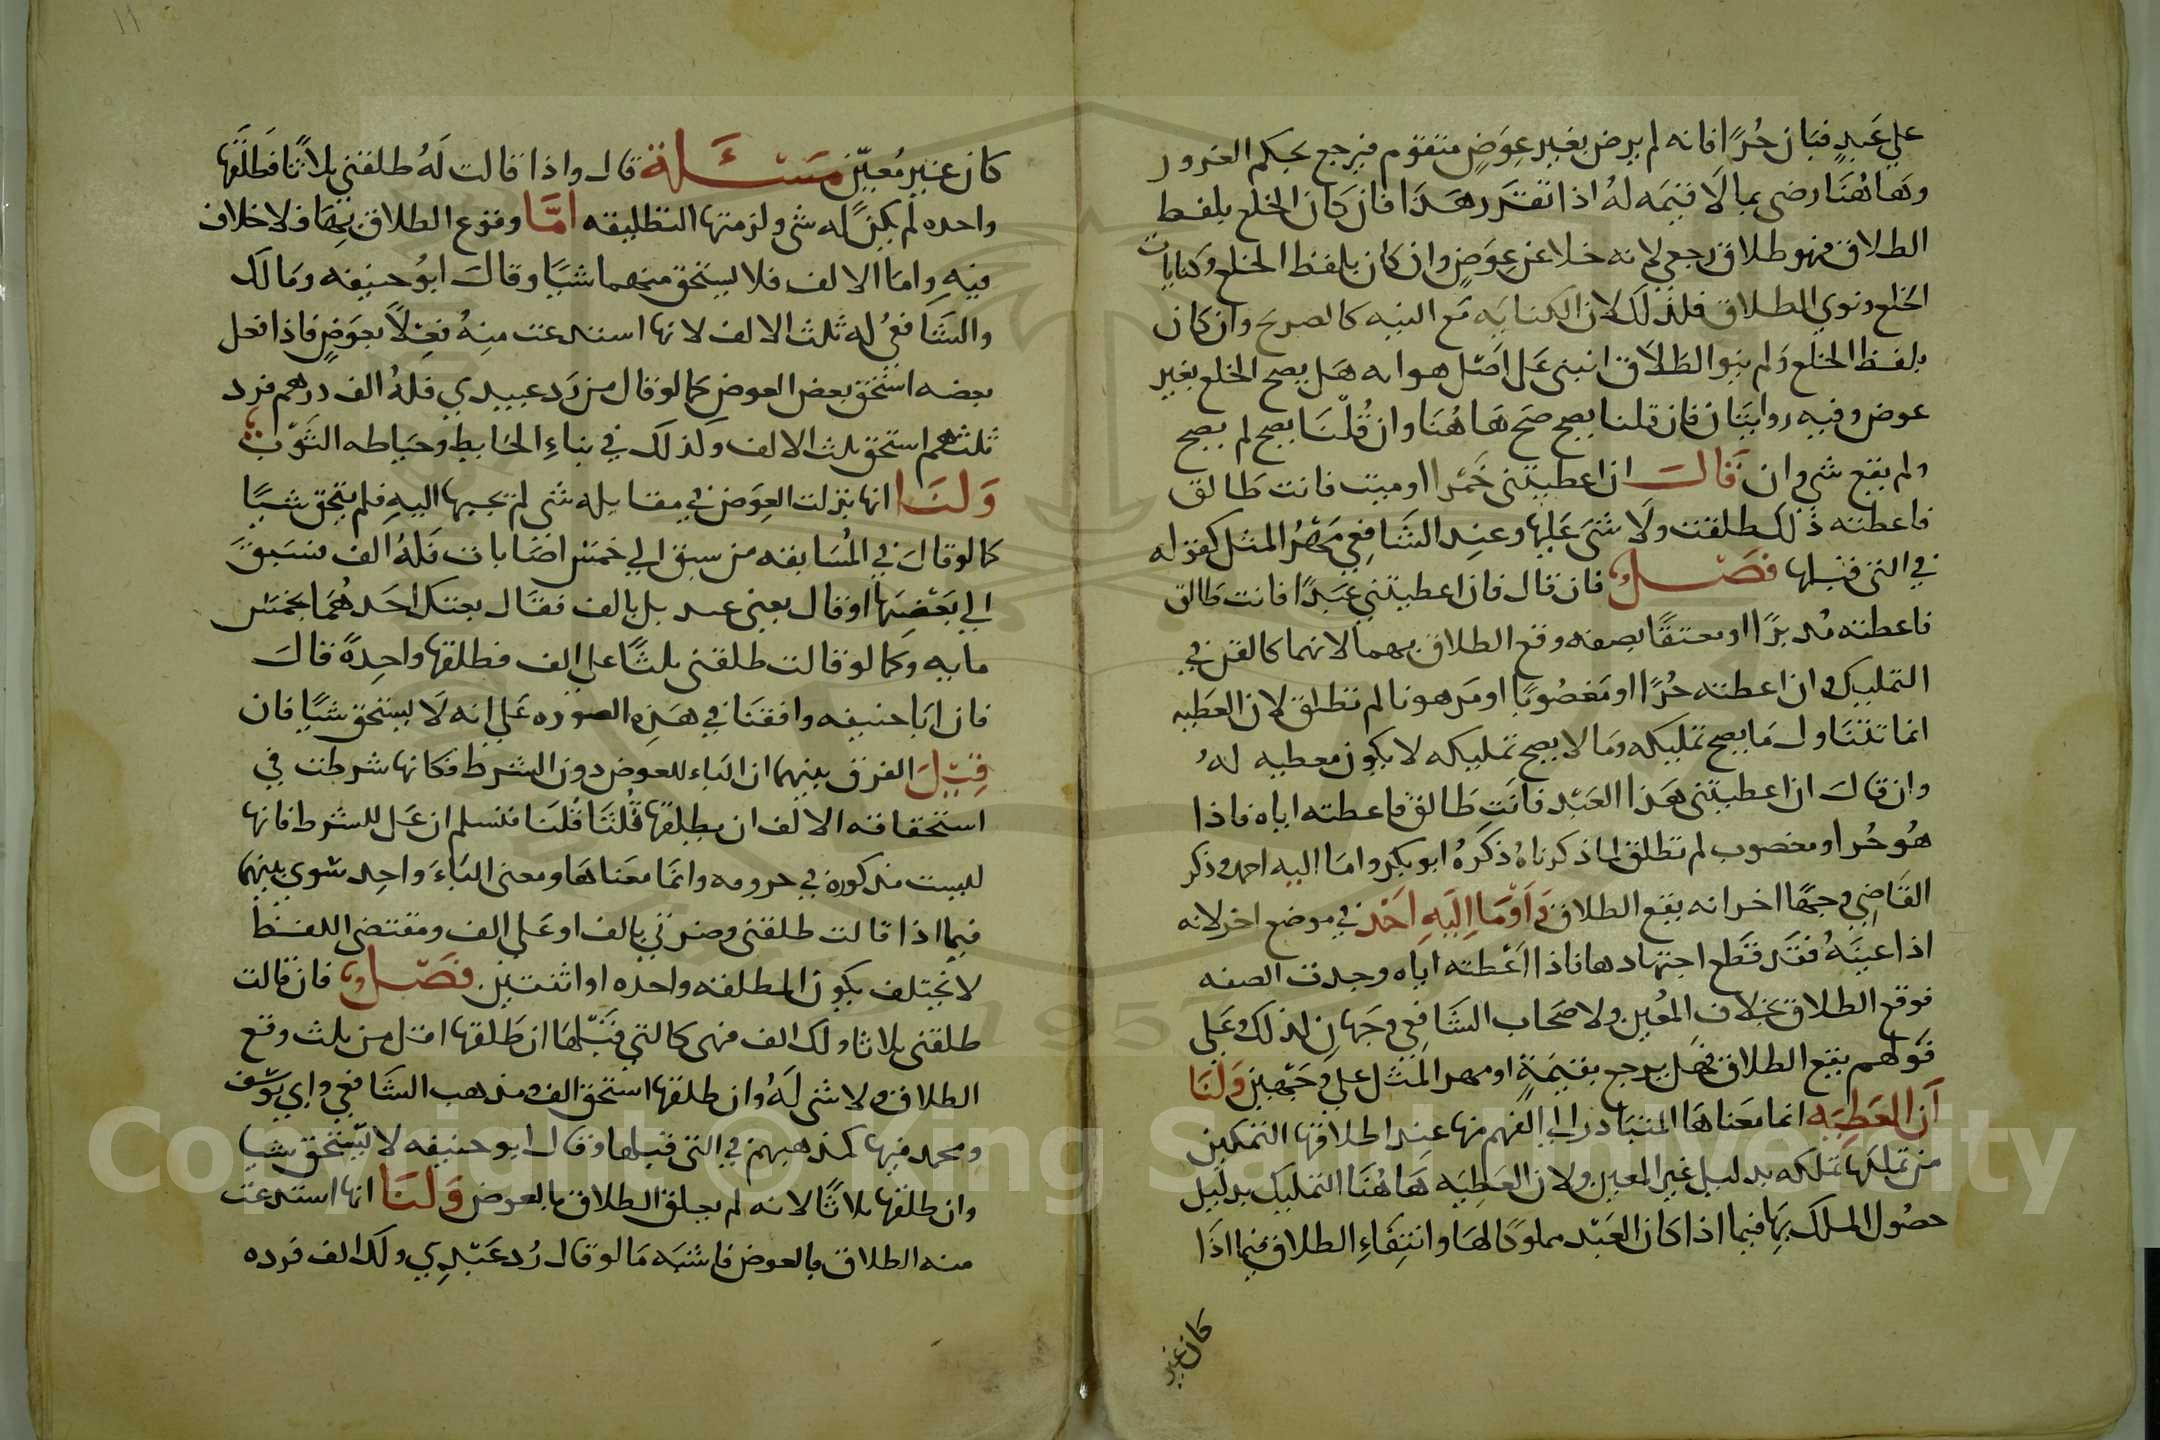 علي عَبدٍ فبَان حُرًا فانه لم يرض بغير عِوَضٍ متقوم فيرجع بحكم الغرور
وهَاهُنَا رضى بما لَا قيمَه لهُ اذا تقرر هَذَا فان كَان الخلع بلفظ
الطلاق فهو طلاق رجعي لانه خلا عن عِوَضٍ وان كان بلفظ الخلع وكنايات
الخلع ونوي الطلاق فكذلَك لان الكنايه مَع النيه كالصريح وان كان
بلفظ الخلع وَلم ينو الطَلاق انبنى عَلى اصْل هو انه هَل يصح الخلع بغير
عوض وفيه روايتَان فان قلنا يصح صحَ هَاهُنَا وان قُلْنَا يصح لم يصح
ولم يقع شي وان قَالَ ان اعطيتني خَمْرا او ميته فانت طَالق
فاعطته ذَلك طلقت ولَا شئ عَليها وعند الشَافِعِي مَهْرُ المثل كقوله
في التى قبلها فصْل فان قال فان اعطيتني عَبدًا فانت طالق
فاعطته مُدبرًا او معتقًا بصفه وقع الطلاق بهما لانهما كالقن في
التمليك وان اعطته حُرًا او مَغصُوبًا او مَرهونا لم تطلق لان العَطيه
انما تتنَاول مَا يصح تمليكه ومَا لا يصح تمليكه لا يكون معطيه لهُ
وان قال ان اعطيتني هَذا العَبْد فانَت طَالق فاعطته اياه فاذا
هُو حُر او مغصوب لم تطلق لما ذكرناهُ ذكَرهُ ابو بكر واومَا اليه احمد وذكر
القَاضِي وجهًا اخر انه يقع الطلاق وَاَوْمَا اِليَهِ احَمْد في موضع اخر لانه
اذا عينَهُ فقَد قطَع اجتهادها فاذا اعْطته اياه وجدت الصفه
فوقع الطلاق بخلاف غير المُعين ولاصحَاب الشَافعِي وجَهان كذلك وعَلى
قَولهم يقع الطلاق فهَل يرجع بقيمَةٍ او مهر المَثْل علي وجَهْين وَلنَا
اَن العَطِيَه انما معَناهَا المتبَادر الى الفهم منها عِند اطلاقها التمكين
من تملكها تملكه بدليل غير المعين ولان العَطِيَه هَاهُنَا التمليك بدليل
حصُول الملك بِهَا فيما اذا كَان العَبْد مملوكًا لهَا وانتِفَاء الطلاق فيما اذَا
كان غير
١١
كان غير مُعيّن مَسْئَلة قال واذا قالت لَهُ طلقني ثلاثًا فطَلَّقها
واحده لم يكن له شي ولزمتها التطليقه امَّا وقوع الطلاق بها فلا خلاف
فيهِ واما الالف فلا يستحق منهما شيًا وقالَ ابوُ حنيفه ومَالك
والشَافعيُ له ثلث الالف لانها استدعت منِهُ فعِلًا بعوَضٍ فاذا فعل
بعضه استَحْق بعض العوض كما لو قال من رَد عبيدي فلهُ الف درهم فرد
ثلثهم استحق ثلث الالف وكذلك في بناءِ الحَايط وخيَاطه الثَوْبِ
وَلنَا انها بذلت العِوَض في مقابله شئ لم يجبها اليهِ فلم يستحق شيًا
كما لو قال في المُسَابقه من سبق الي خمَسْ اصَابات فلهُ الف فسَبق
الي بَعْضِهَا او قال بعني عبديك بالف فقَال بعتك احَدهُمَا بخمسْ
مايه وكما لو قالت طلقني ثلثًا علي الف فطلقها واحِدةً قالَ
فان ابَا حنيفه وافقنَا في هَذِه الصوره عَلي انه لَا يستحق شيًا فان
قِيْلَ الفرق بينهما ان البَاء للعوض دون الشرط فكانها شرطت في
استحقاقه الالف ان يطلقها قُلْنَا قُلنَا لا نسلم ان عَلى للشرط فانها
ليست مذكوره في حروفه وانمَا معَناهَا ومعنى البَاءَ واحِد سَوي بينهما
فيما اذا قالت طلقني وضرتي بالف او عَلى الف ومقتضى اللفظ
لا يختلف بكون المطلقه واحده او اثنتين فصَْل فان قالت
طلقني ثلاثا ولك الف فهى كالتي قَبْلهَا ان طَلقها اقل من ثلث وقع
الطلاق ولا شئ لَهُ وان طلقها استحق الف ومذهب الشَافعي وابي يَوسُف
ومحمد فيها كمذهبهم في التي قبلها وقال ابو حنيفه لا يَسْتحق شيا
وان طلقها ثلاثًا لانه لم يعلق الطلاق بالعوض وَلنَا انها استدعت
منه الطلاق بالعوض فاشبَه مَا لو قال رُد عَبْدِي ولك الف فرده